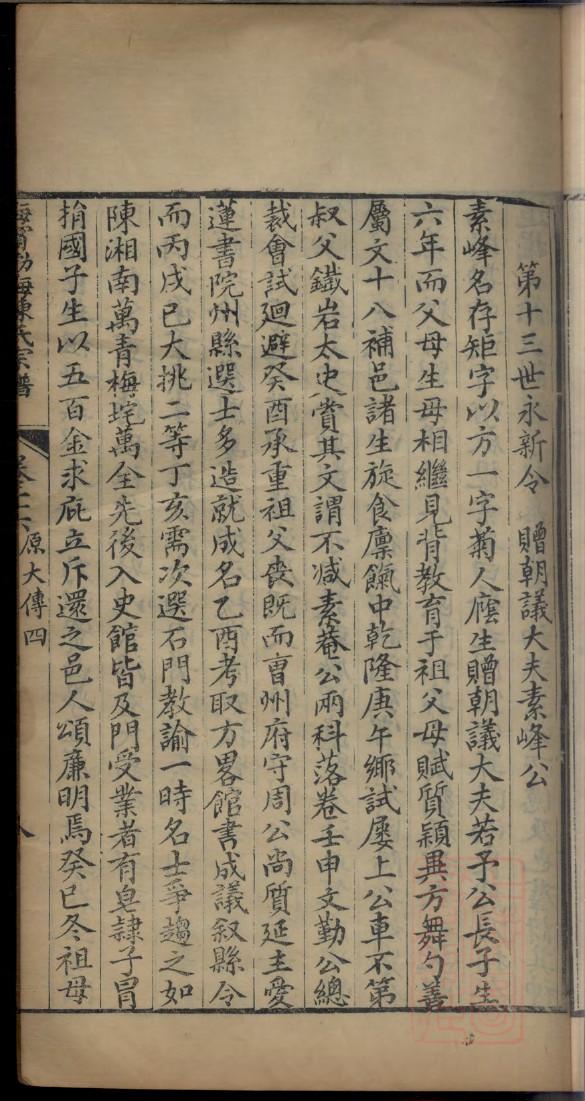 第十三世永新令　贈朝議大夫素峰公
素峰名存矩字以方一字菊人廕生贈朝議大夫若予公長子生
六年而父母生母相繼見背教育于祖父母賦質穎異方舞勺善
屬文十八補邑諸生旋食廩餼中乾隆庚午鄉試屢上公車不第
叔父鐵岩太史賞其文謂不減素菴公兩科落卷壬申文勤公總
裁會試廻避癸酉承重祖父喪既而曹州府守周公尚質延主愛
蓮書院州縣選士多造就成名乙酉考取方畧館書成議叙縣令
而丙戌已大挑二等丁亥需次選石門教諭一時名士爭趨之如
陳湘南萬青梅垞萬全先後入史館皆及門受業者有皂隸子冒
捐國子生以五百金求庇立斥還之邑人頌廉明焉癸巳冬祖母
海寧渤海陳氏宗譜　卷二六　原大傳四　八